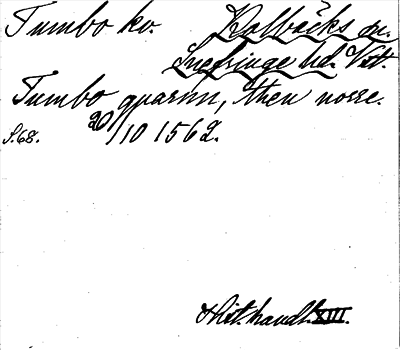 Tumbo kv. Kolbäcks sn.
Snefringe hd. Vstl.
Tumbo quarnn, then norre.
S.68. 20/10 1562.
Hist. handl. XIII.